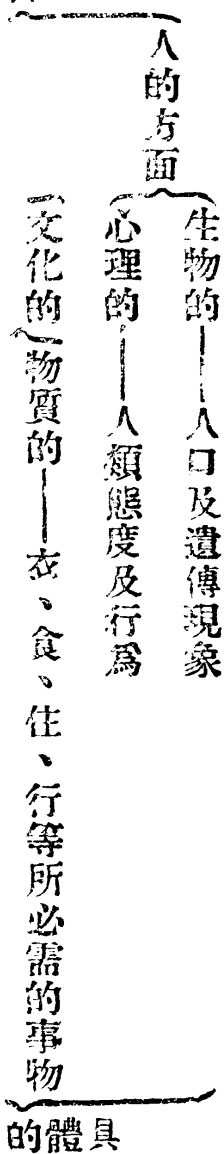 人的方面
生物的——人口及遺傳現象
心理的——人類態度及行爲
文化的
物質的——衣、食、住、行等所必需的事物
具體的